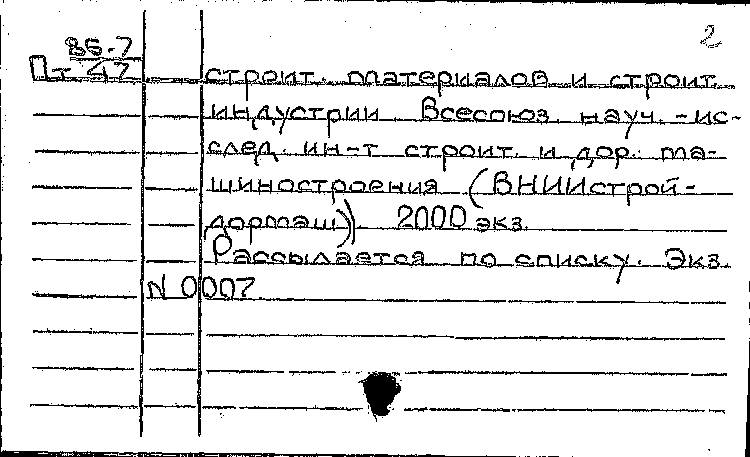 2
86-7
Пт 47
строит. материалов и строит.
индустрии. Всесоюз. науч.-ис-
след. ин-т строит. и дор. ма-
шиностроения (ВНИИстрой-
дормаш)). 2000 экз.
Рассылается по списку. Экз.
N 0007.